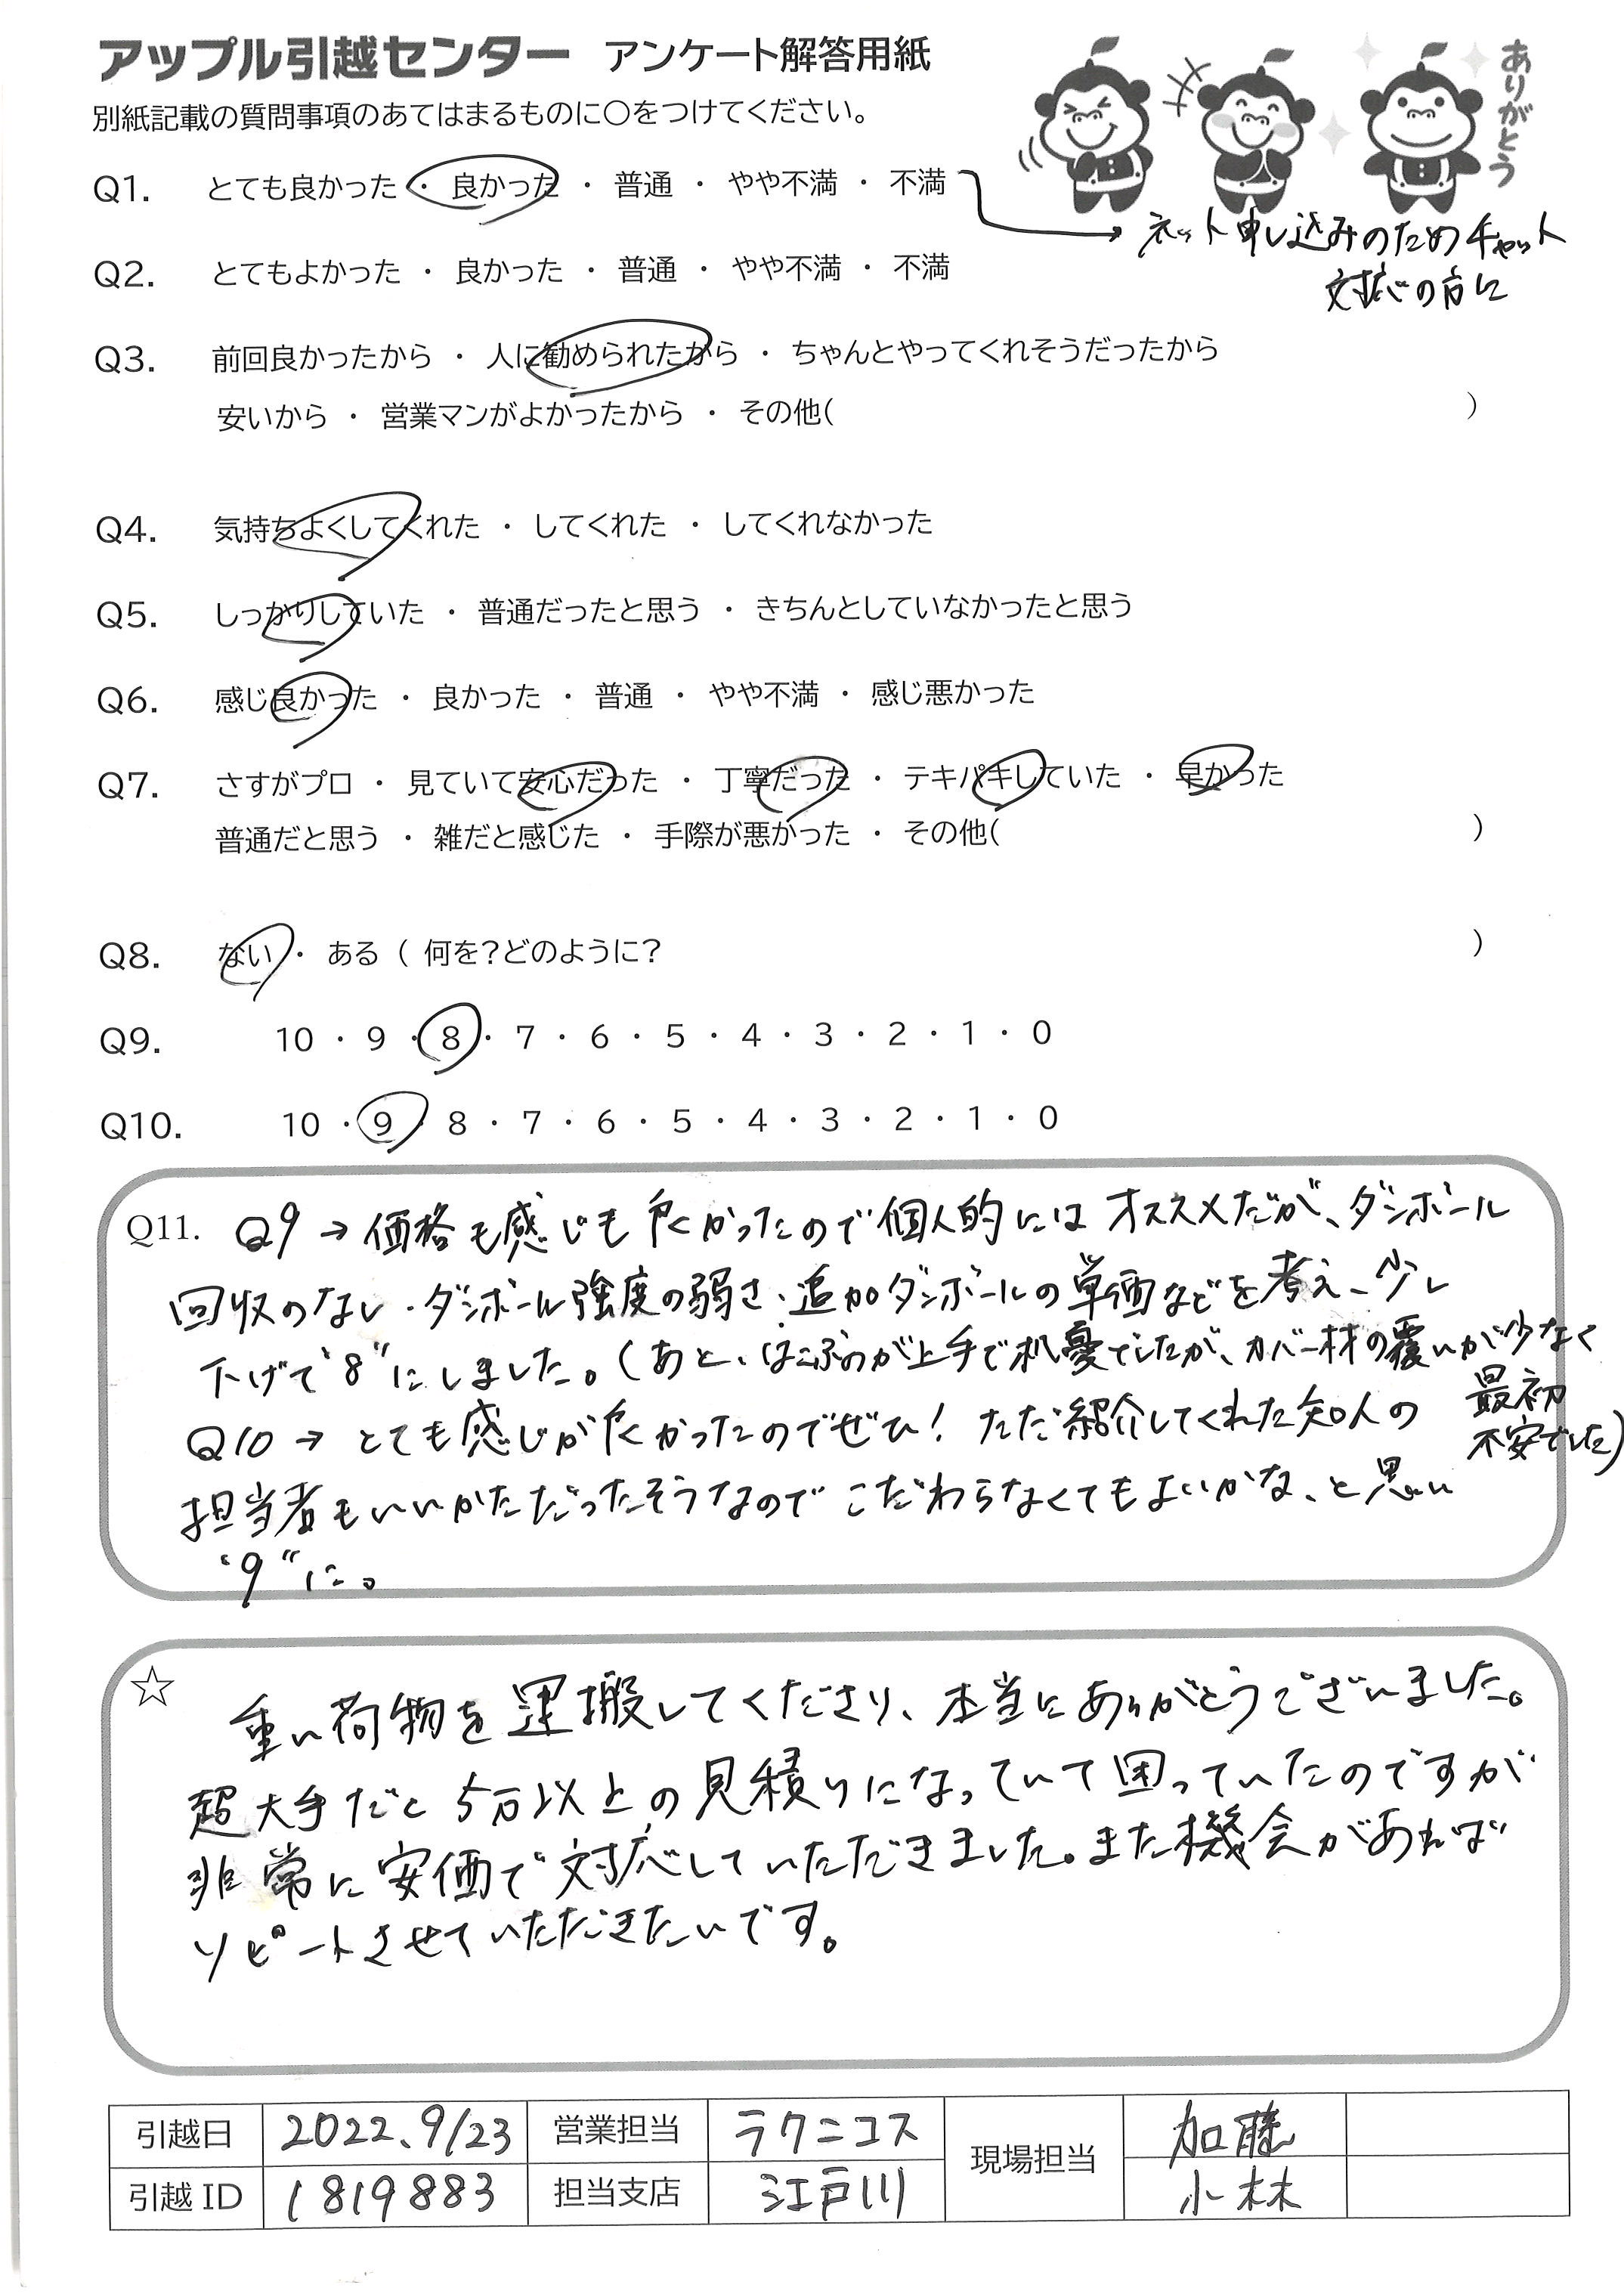 アップル引越センター アンケート解答用紙
別紙記載の質問事項のあてはまるものに○をつけてください。
ありがとう
Q1. とても良かった ・ 良かった ・ 普通 ・ やや不満 ・ 不満
ネット申し込みのためチャット
対応の方に
Q2. とてもよかった ・ 良かった ・ 普通 ・ やや不満 ・ 不満
Q3. 前回良かったから ・ 人に勧められたから ・ ちゃんとやってくれそうだったから
安いから ・ 営業マンがよかったから ・ その他( )
Q4. 気持ちよくしてくれた ・ してくれた ・ してくれなかった
Q5. しっかりしていた ・ 普通だったと思う ・ きちんとしていなかったと思う
Q6. 感じ良かった ・ 良かった ・ 普通 ・ やや不満 ・ 感じ悪かった
Q7. さすがプロ ・ 見ていて安心だった ・ 丁寧だった ・ テキパキしていた ・ 早かった
普通だと思う ・ 雑だと感じた ・ 手際が悪かった ・ その他( )
Q8. ない ・ ある ( 何を?どのように? )
Q9. 10 ・ 9 ・ 8 ・ 7 ・ 6 ・ 5 ・ 4 ・ 3 ・ 2 ・ 1 ・ 0
Q10. 10 ・ 9 ・ 8 ・ 7 ・ 6 ・ 5 ・ 4 ・ 3 ・ 2 ・ 1 ・ 0
Q11. Q9 → 価格も感じも良くかったので個人的にはオススメだが、ダンボール
回収のなし・ダンボール強度の弱さ・追加ダンボールの単価などを考え、少し
下げて"8"にしました。(あと、はこぶのが上手で杞憂でしたが、カバー材の覆いが少なく
最初
不安でした)
Q10 → とても感じが良くかったのでぜひ! ただ紹介してくれた知人の
担当者もいいかただったそうなのでこだわらなくてもよいかな、と思い
"9"に。
☆ 重い荷物を運搬してくださり、本当にありがとうございました。
超大手だと5万以上の見積りになっていて困っていたのですが
非常に安価で対応していただきました。また機会があれば
リピートさせていただきたいです。
引越日 2022.9/23 営業担当 ラクニコス 現場担当 加藤
引越ID 1819883 担当支店 江戸川 小林